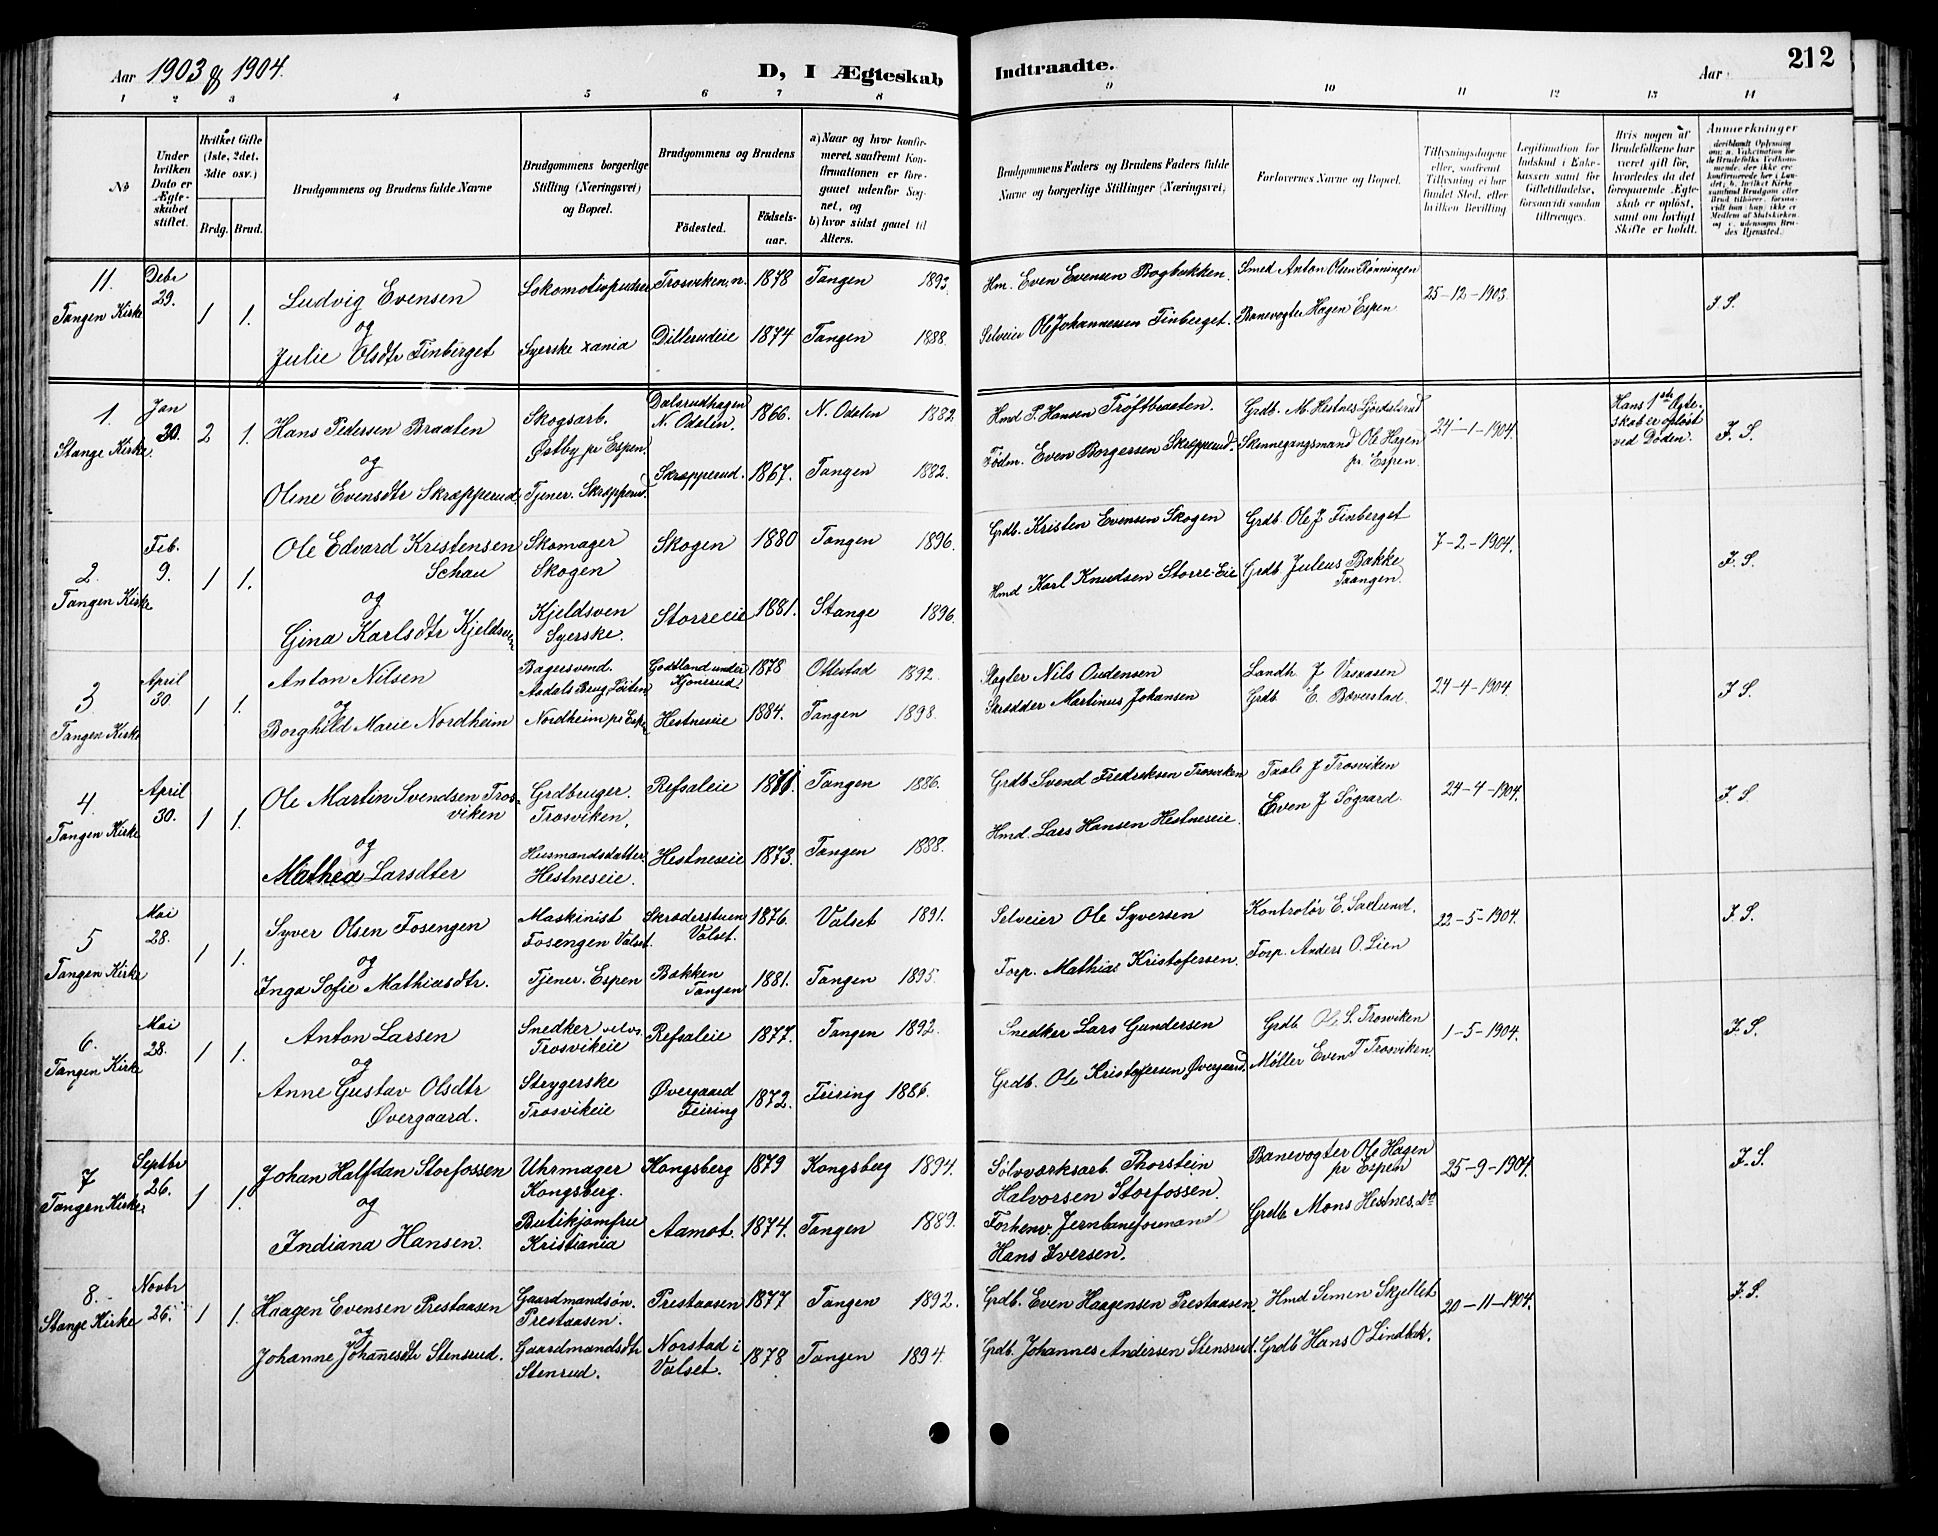 Aar 1903 & 1904.
D, I Ægteskab
Indtraadte.
Aar
212
1 2 3 4 5 6 7 8 9 10 11 12 13 14
№
Under hvilken Dato er Ægteskabet stiftet.
Hvilket Gifte (1ste, 2det, 3die osv.)
Brdg. Brud.
Brudgommens og Brudens fulde Navne
Brudgommens borgerlige Stilling (Næringsvei) og Bopæl.
Brudgommens og Brudens
Födested.
Födsels-aar.
a) Naar og hvor konfirmeret, saafremt Konfirmationen er foregaaet udenfor Sognet, og
b) hvor sidst gaaet til Alters.
Brudgommens Faders og Brudens Faders fulde Navne og borgerlige Stillinger (Næringsvei)
Forlovernes Navne og Bopæl.
Tillysningsdagene eller, saafremt Tillysning ei har fundet Sted, efter hvilken Bevilling
Legitimation for Indskud i Enkekassen samt for Giftetilladelse, forsaavidt saadan tiltrænges.
Hvis nogen af Brudefolkene har været gift för, hvorledes da det foregaaende Ægteskab er oplöst, samt om lovligt Skifte er holdt.
Anmerkninger
11. Tangen Kirke
Debr 29.
1 1.
Ludvig Evensen
og
Julie Olsdtr Finberget
Lokomotivpudser
Syerske xania
Trosviken n.
Dillerudeie
1878
1874
Tangen 1893.
Tangen 1888.
Hm. Even Evensen Bogbakken.
Selveier Ole Johannessen Finberget.
Smed Anton Olsen Rønningen
Banevogter Hagen Espen
25-12-1903.
F. S.
1. Stange Kirke.
Jan 30.
2 1.
Hans Pedersen Braaten
og
Oline Evensdtr Skræpperud.
Skogsarb. Østby pr Espen.
Tjener. Skræpperud.
Dalsrudhagen N. Odalen.
Skræpperud.
1866.
1867.
N. Odalen 1882.
Tangen 1882.
Hmd P. Hansen Trøftbraaten.
Fødm. Even Borgersen Skræpperud.
Grdb. M. Hestnes
Skinnegangsmand Ole Hagen pr. Espen.
24-1-1904.
Hans 1ste Ægteskab er opløst ved Døden.
F. S.
2. Tangen Kirke
Feb. 9.
1 1.
Ole Edvard Kristensen Schau
og
Gina Karlsdtr Kjeldsven
Skomager Skogen
Kjeldsven Syerske.
Skogen
Storreeie
1880
1881.
Tangen 1896.
Stange 1896.
Grdb. Kristen Evensen Skogen
Hmd Karl Knudsen Storre-Eie
Grdb. Ole J Finberget
Grdb. Julius Bakke Taangen.
7-2-1904.
F. S.
3 Tangen Kirke
April 30.
1 1.
Anton Nilsen
og
Borghild Marie Nordheim
Bagersvend. Aadals Brug Löiten
Nordheim pr Espen
Godtland under Kjonerud.
Hestneseie
1878
1884.
Ottestad 1892.
Tangen 1898.
Slagter Nils Oudensen
Skrædder Martinus Johansen
Landh. J
Grdb. E. Böverstad.
24-4-1904.
F. S.
4. Tangen Kirke
April 30.
1 1.
Ole Martin Svendsen Trosviken
og
Mathea Larsdter
Grdbruger. Trosviken,
Husmandsdatter Hestneseie.
Refsaleie
Hestneseie
1871.
1873.
Tangen 1886.
Tangen 1888.
Grdb. Svend Fredriksen Trosviken
Hmd. Lars Hansen Hestneseie.
J Trosviken
Even J Søgaard.
24-4-1904.
F. S.
5 Tangen Kirke
Mai 28.
1 1.
Syver Olsen Fosengen
og
Inga Sofie Mathiasdtr.
Maskinist Fosengen Valset.
Tjener. Espen
Skræderstuen Valset.
Bakken Tangen
1876.
1881.
Valset 1891.
Tangen 1895.
Selveier Ole Syversen
Torp. Mathias Kristofersen.
Kontrolör E. Sælund.
Torp. Anders O. Lien
22-5-1904.
F. S.
6. Tangen Kirke
Mai 28.
1 1.
Anton Larsen
og
Anne Gustav Olsdtr Øvergaard.
Snedker Trosvikeie
Strygerske Trosvikeie
Refsaleie
Øvergaard Feiring
1877.
1872.
Tangen 1892.
Feiring 1886.
Snedker Lars Gundersen
Grdb. Ole Kristofersen Øvergaard.
Grdb. Ole S. Trosviken
Møller Even T Trosviken.
1-5-1904.
F. S.
7 Tangen Kirke.
Septbr 26.
1 1.
Johan Halfdan Storfossen
og
Indiana Hansen.
Uhrmager Kongsberg.
Butikjomfru Kristiania
Kongsberg
Aamot.
1879
1874.
Kongsberg 1894.
Tangen 1889.
Sølvværksarb. Thorstein Halvorsen Storfossen.
Forhenv. Jernbaneformand Hans Iversen.
Banevogter Ole Hagen pr Espen
Grdb Mons Hestnes. Do
25-9-1904.
F. S.
8. Stange Kirke
Novbr 26.
1 1.
Haagen Evensen Prestaasen
og
Johanne Johannesdtr Stensrud.
Gaardmandsön. Prestaasen.
Gaardmandsdtr Stenrud.
Prestaasen
Norstad i Valset.
1877
1878
Tangen 1892.
Tangen 1894.
Grdb. Even Haagensen Prestaasen.
Grdb. Johannes Andersen Stensrud.
Hmd Simen Skjellet
Grdb Hans O Lindbak.
20-11-1904.
F. S.